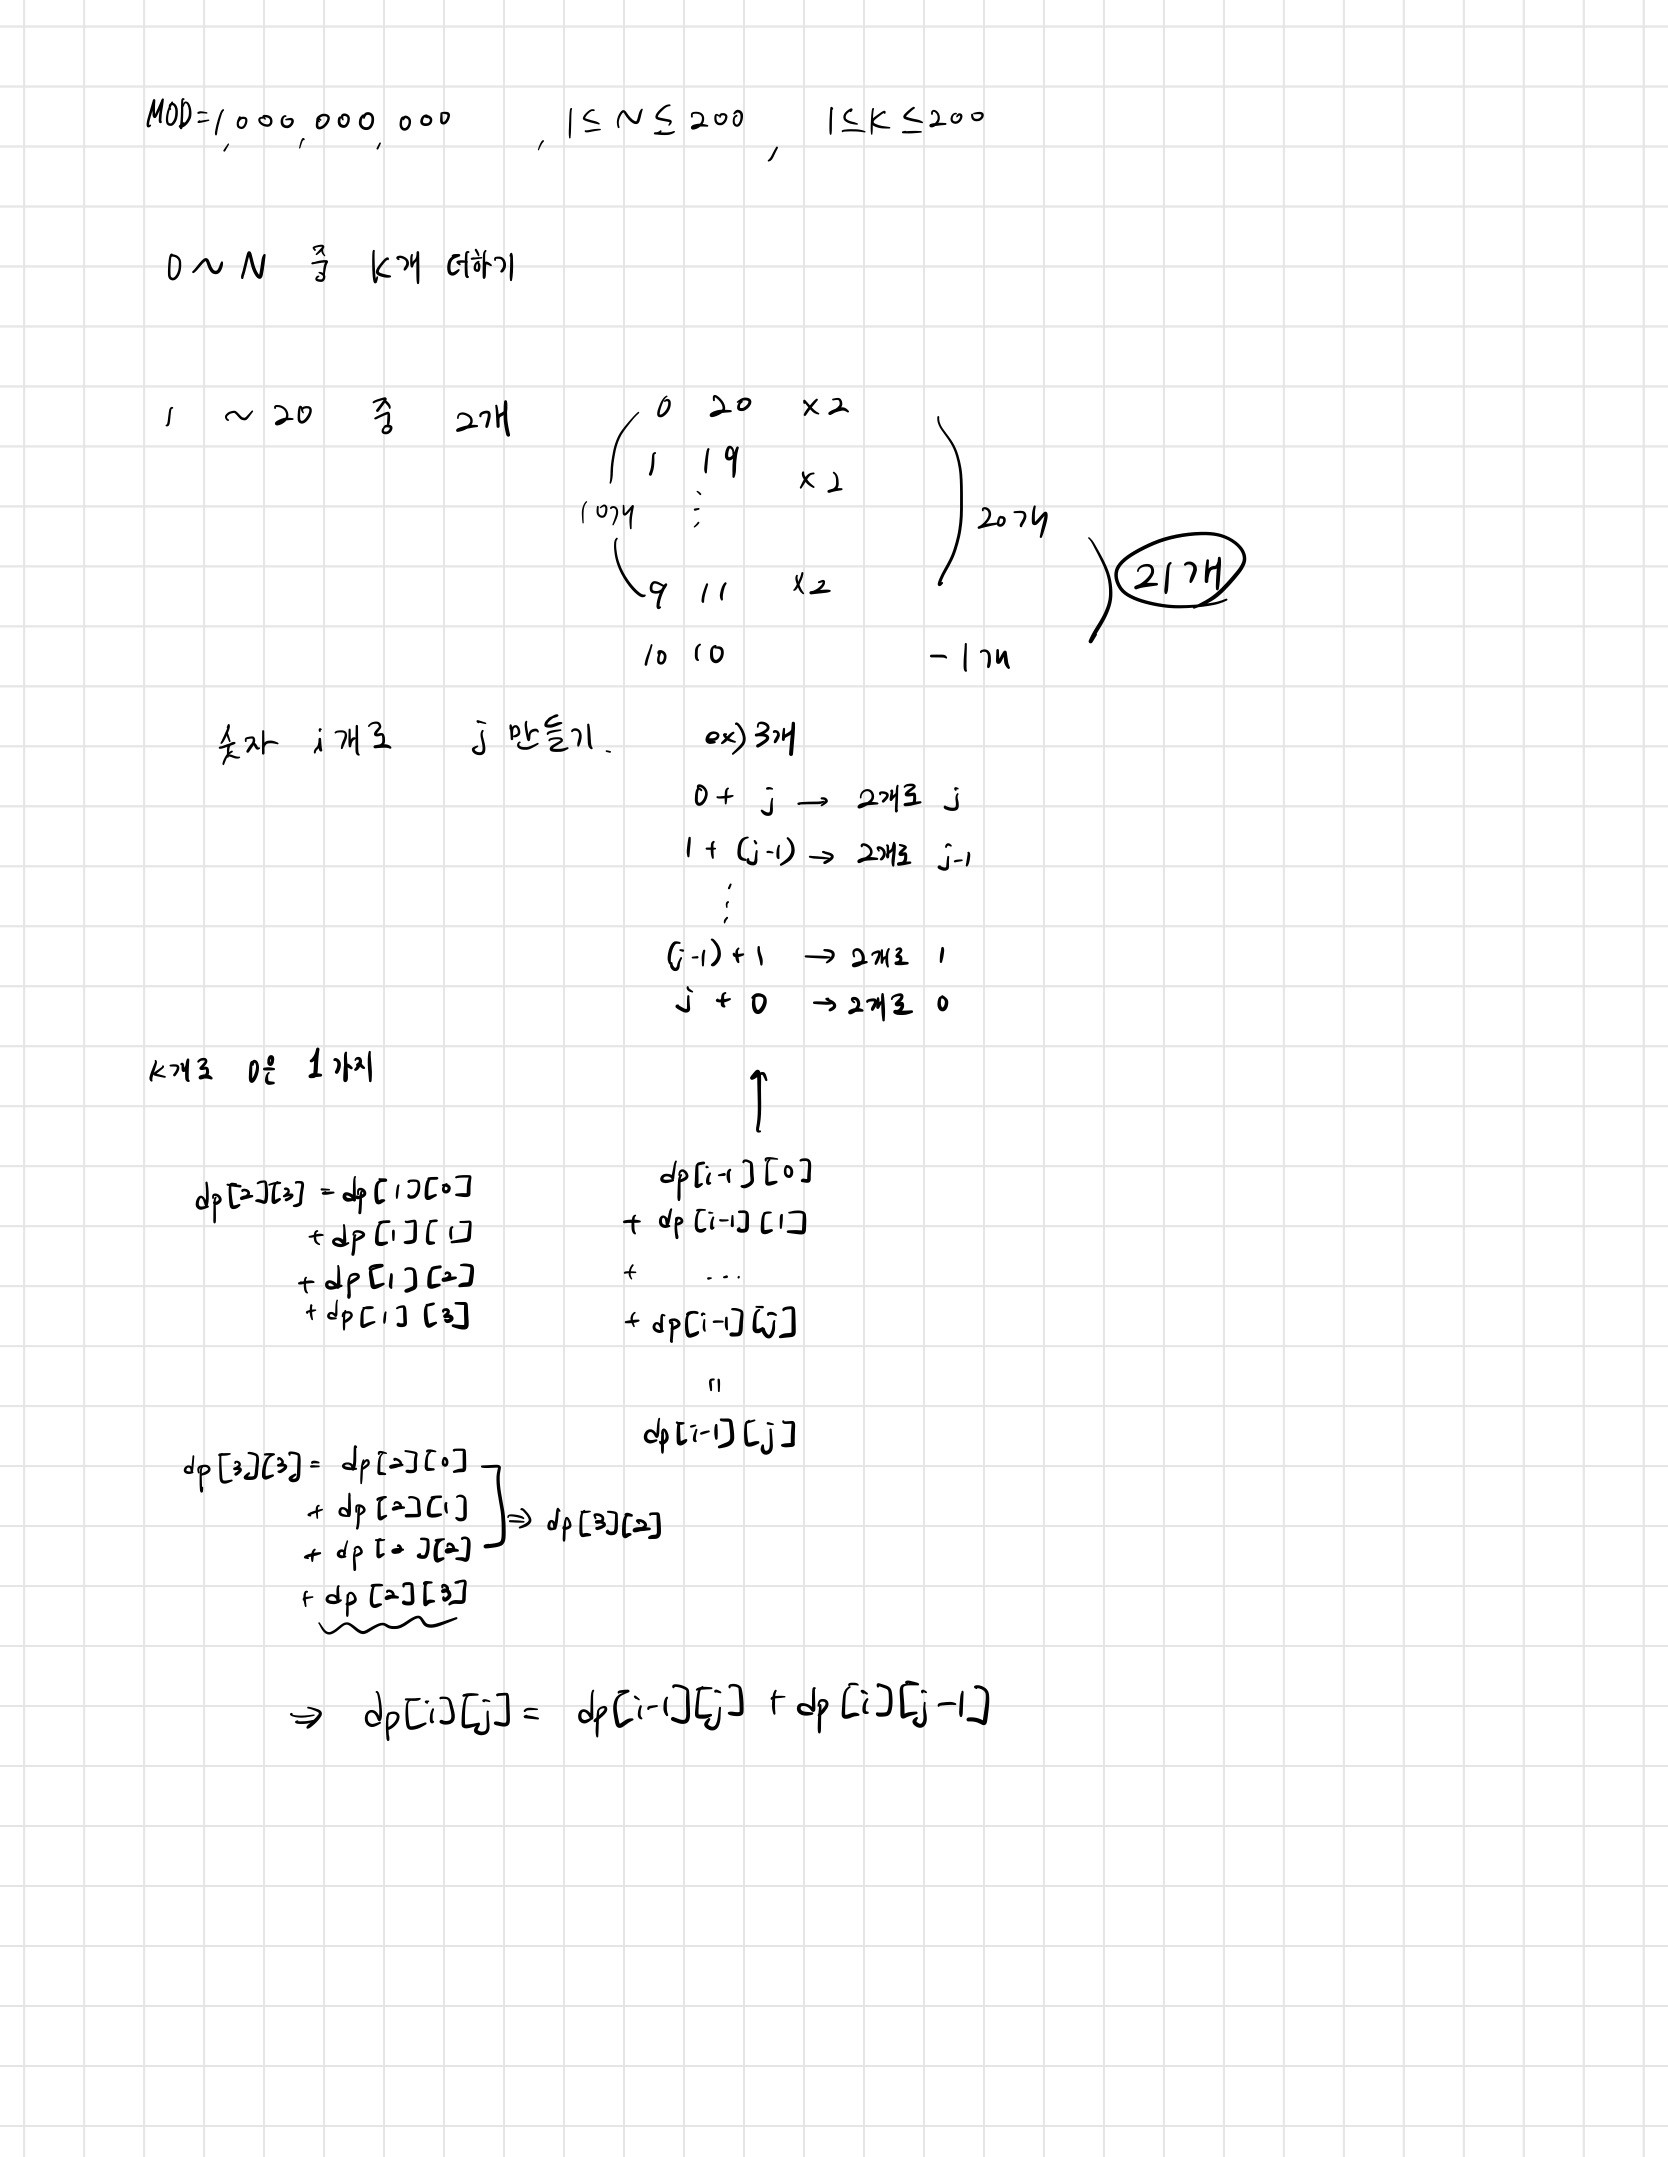 MOD=1,000,000,000 , 1≤N≤200 , 1≤K≤200
0~N 중 K개 더하기
1 ~20 중 2개
0 20 x2
1 19 x2
10개 ⋮ 20개
9 11 x2
21개
10 10 - 1개
숫자 i개로 j 만들기. ex) 3개
0 + j → 2개로 j
1 + (j-1) → 2개로 j-1
⋮
(j-1) + 1 → 2개로 1
j + 0 → 2개로 0
K개로 0은 1가지
↑
dp[2][3] = dp[1][0]
+ dp[1][1]
+ dp[1][2]
+ dp[1][3]
dp[i-1][0]
+ dp[i-1][1]
+ ...
+ dp[i-1][j]
=
dp[i-1][j]
dp[3][3] = dp[2][0]
+ dp[2][1]
+ dp[2][2]
+ dp[2][3]
⇒ dp[3][2]
⇒ dp[i][j] = dp[i-1][j] + dp[i][j-1]